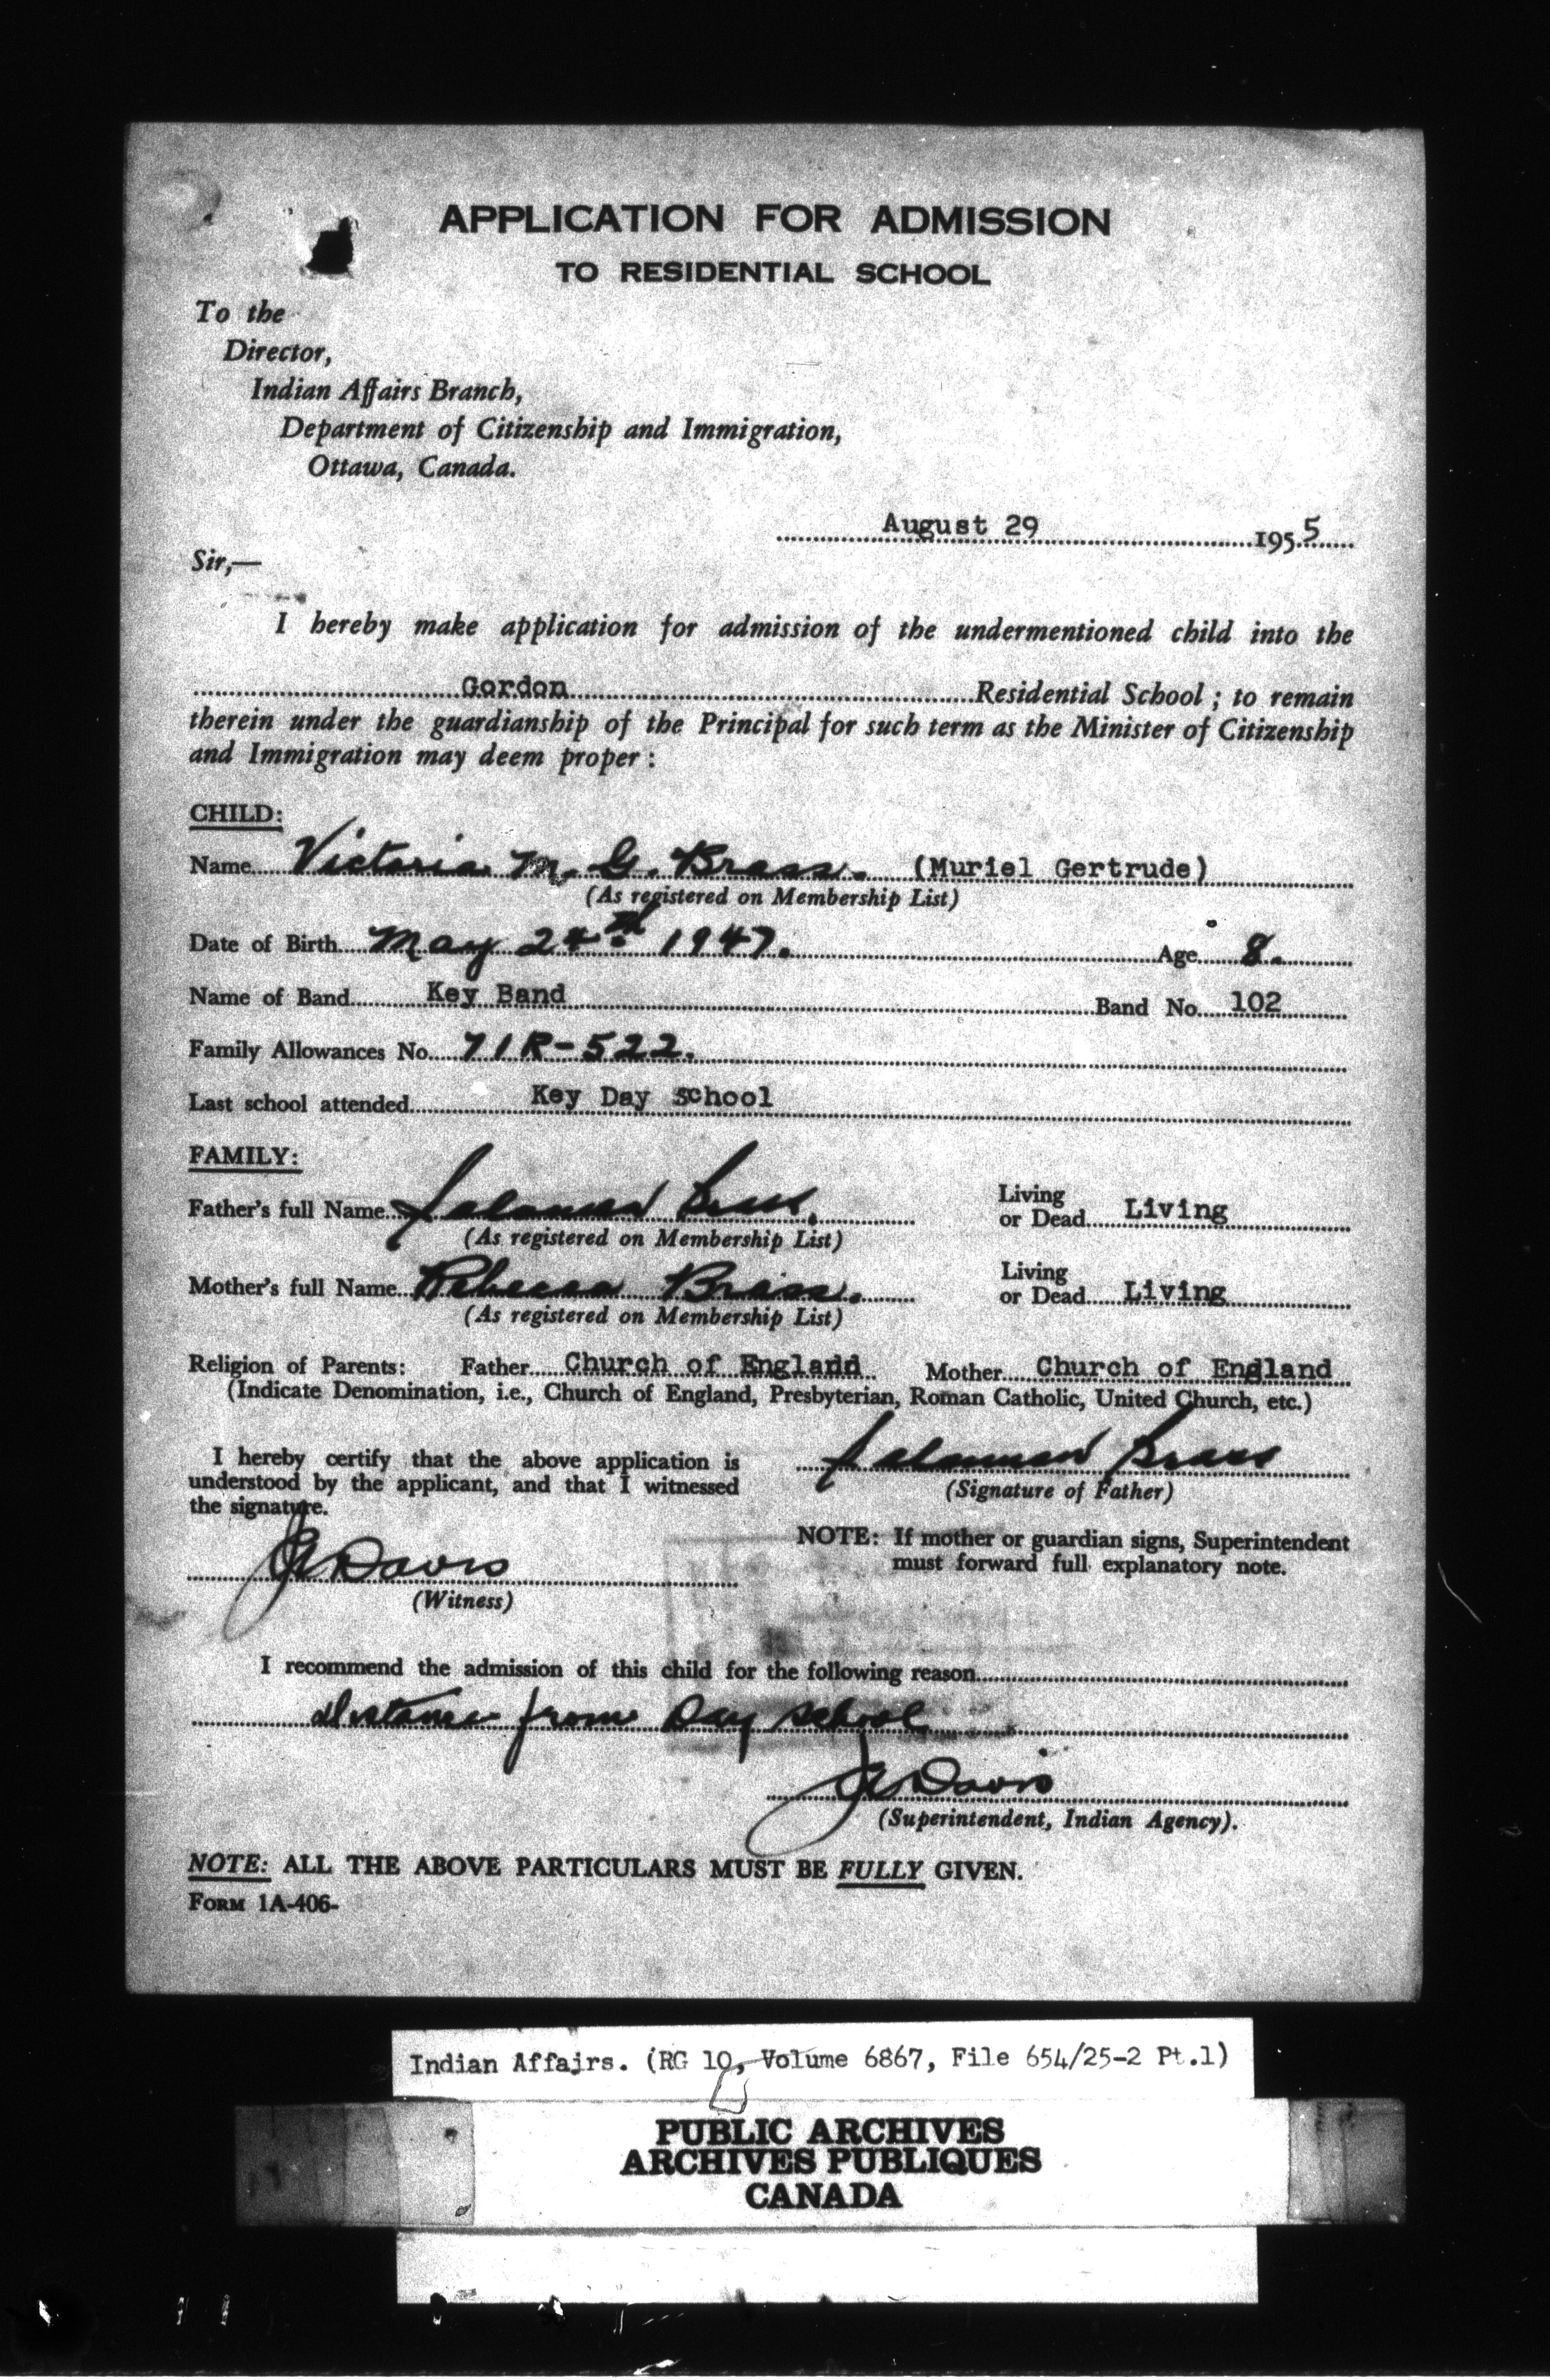 APPLICATION FOR ADMISSION
TO RESIDENTIAL SCHOOL
To the
Director,
Indian Affairs Branch,
Department of Citizenship and Immigration,
Ottawa, Canada.
August 29 1955
Sir,—
I hereby make application for admission of the undermentioned child into the
Gordon Residential School ; to remain
therein under the guardianship of the Principal for such term as the Minister of Citizenship
and Immigration may deem proper :
CHILD:
Name Victoria M. G. Brass. (Muriel Gertrude)
(As registered on Membership List)
Date of Birth May 24th 1947. Age 8.
Name of Band Key Band Band No. 102
Family Allowances No. 71R-522.
Last school attended Key Day School
FAMILY:
Father's full Name Saloman Brass. Living or Dead Living
(As registered on Membership List)
Mother's full Name Rebecca Brass. Living or Dead Living
(As registered on Membership List)
Religion of Parents: Father Church of England Mother Church of England
(Indicate Denomination, i.e., Church of England, Presbyterian, Roman Catholic, United Church, etc.)
I hereby certify that the above application is
understood by the applicant, and that I witnessed
the signature.
Saloman Brass
(Signature of Father)
NOTE: If mother or guardian signs, Superintendent
must forward full explanatory note.
Davis
(Witness)
I recommend the admission of this child for the following reason
distance from Day school
Davis
(Superintendent, Indian Agency).
NOTE: ALL THE ABOVE PARTICULARS MUST BE FULLY GIVEN.
FORM 1A-406-
Indian Affairs. (RG 10, Volume 6867, File 654/25-2 Pt.1)
PUBLIC ARCHIVES
ARCHIVES PUBLIQUES
CANADA